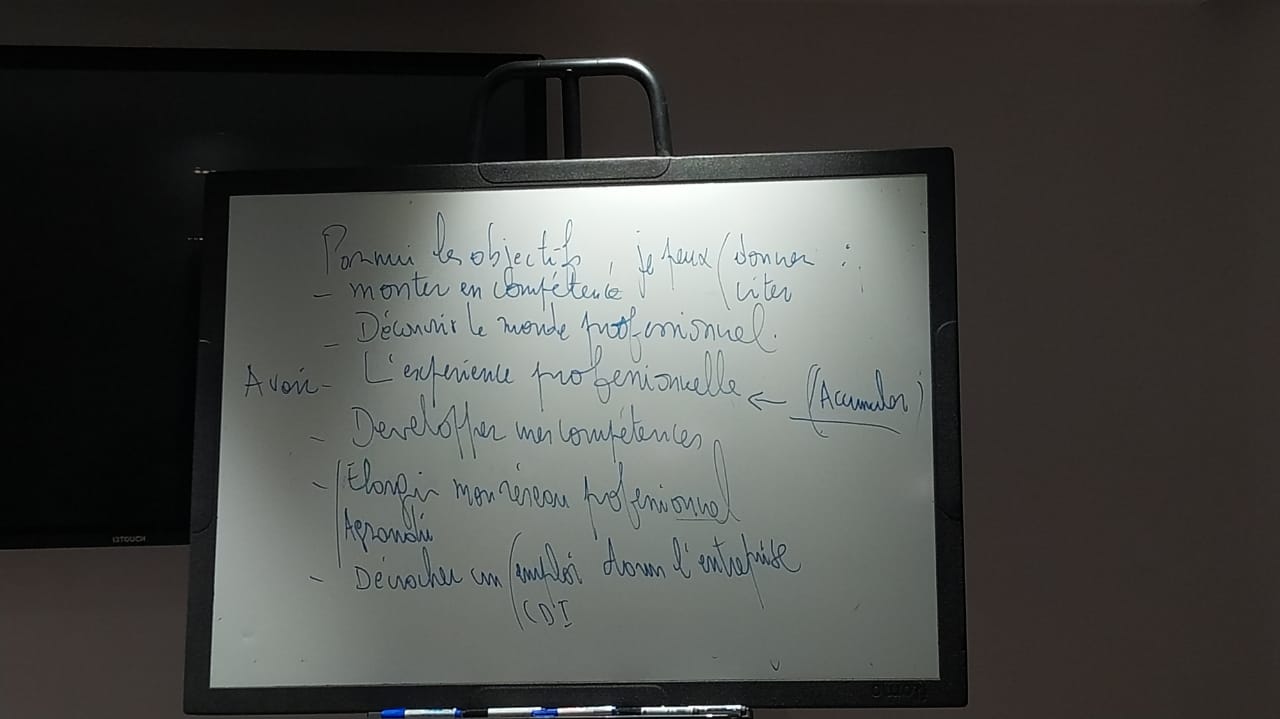 Parmi les objectifs, je peux (donner :
- monter en compétence (citer
- Découvrir le monde professionnel.
Avoir - L'expérience professionnelle ← (Accumuler)
- Developper mes compétences
- Élargir mon réseau professionnal
Agrandir
- Décrocher un (emploi dans l'entreprise
(CDI
i3TOUCH